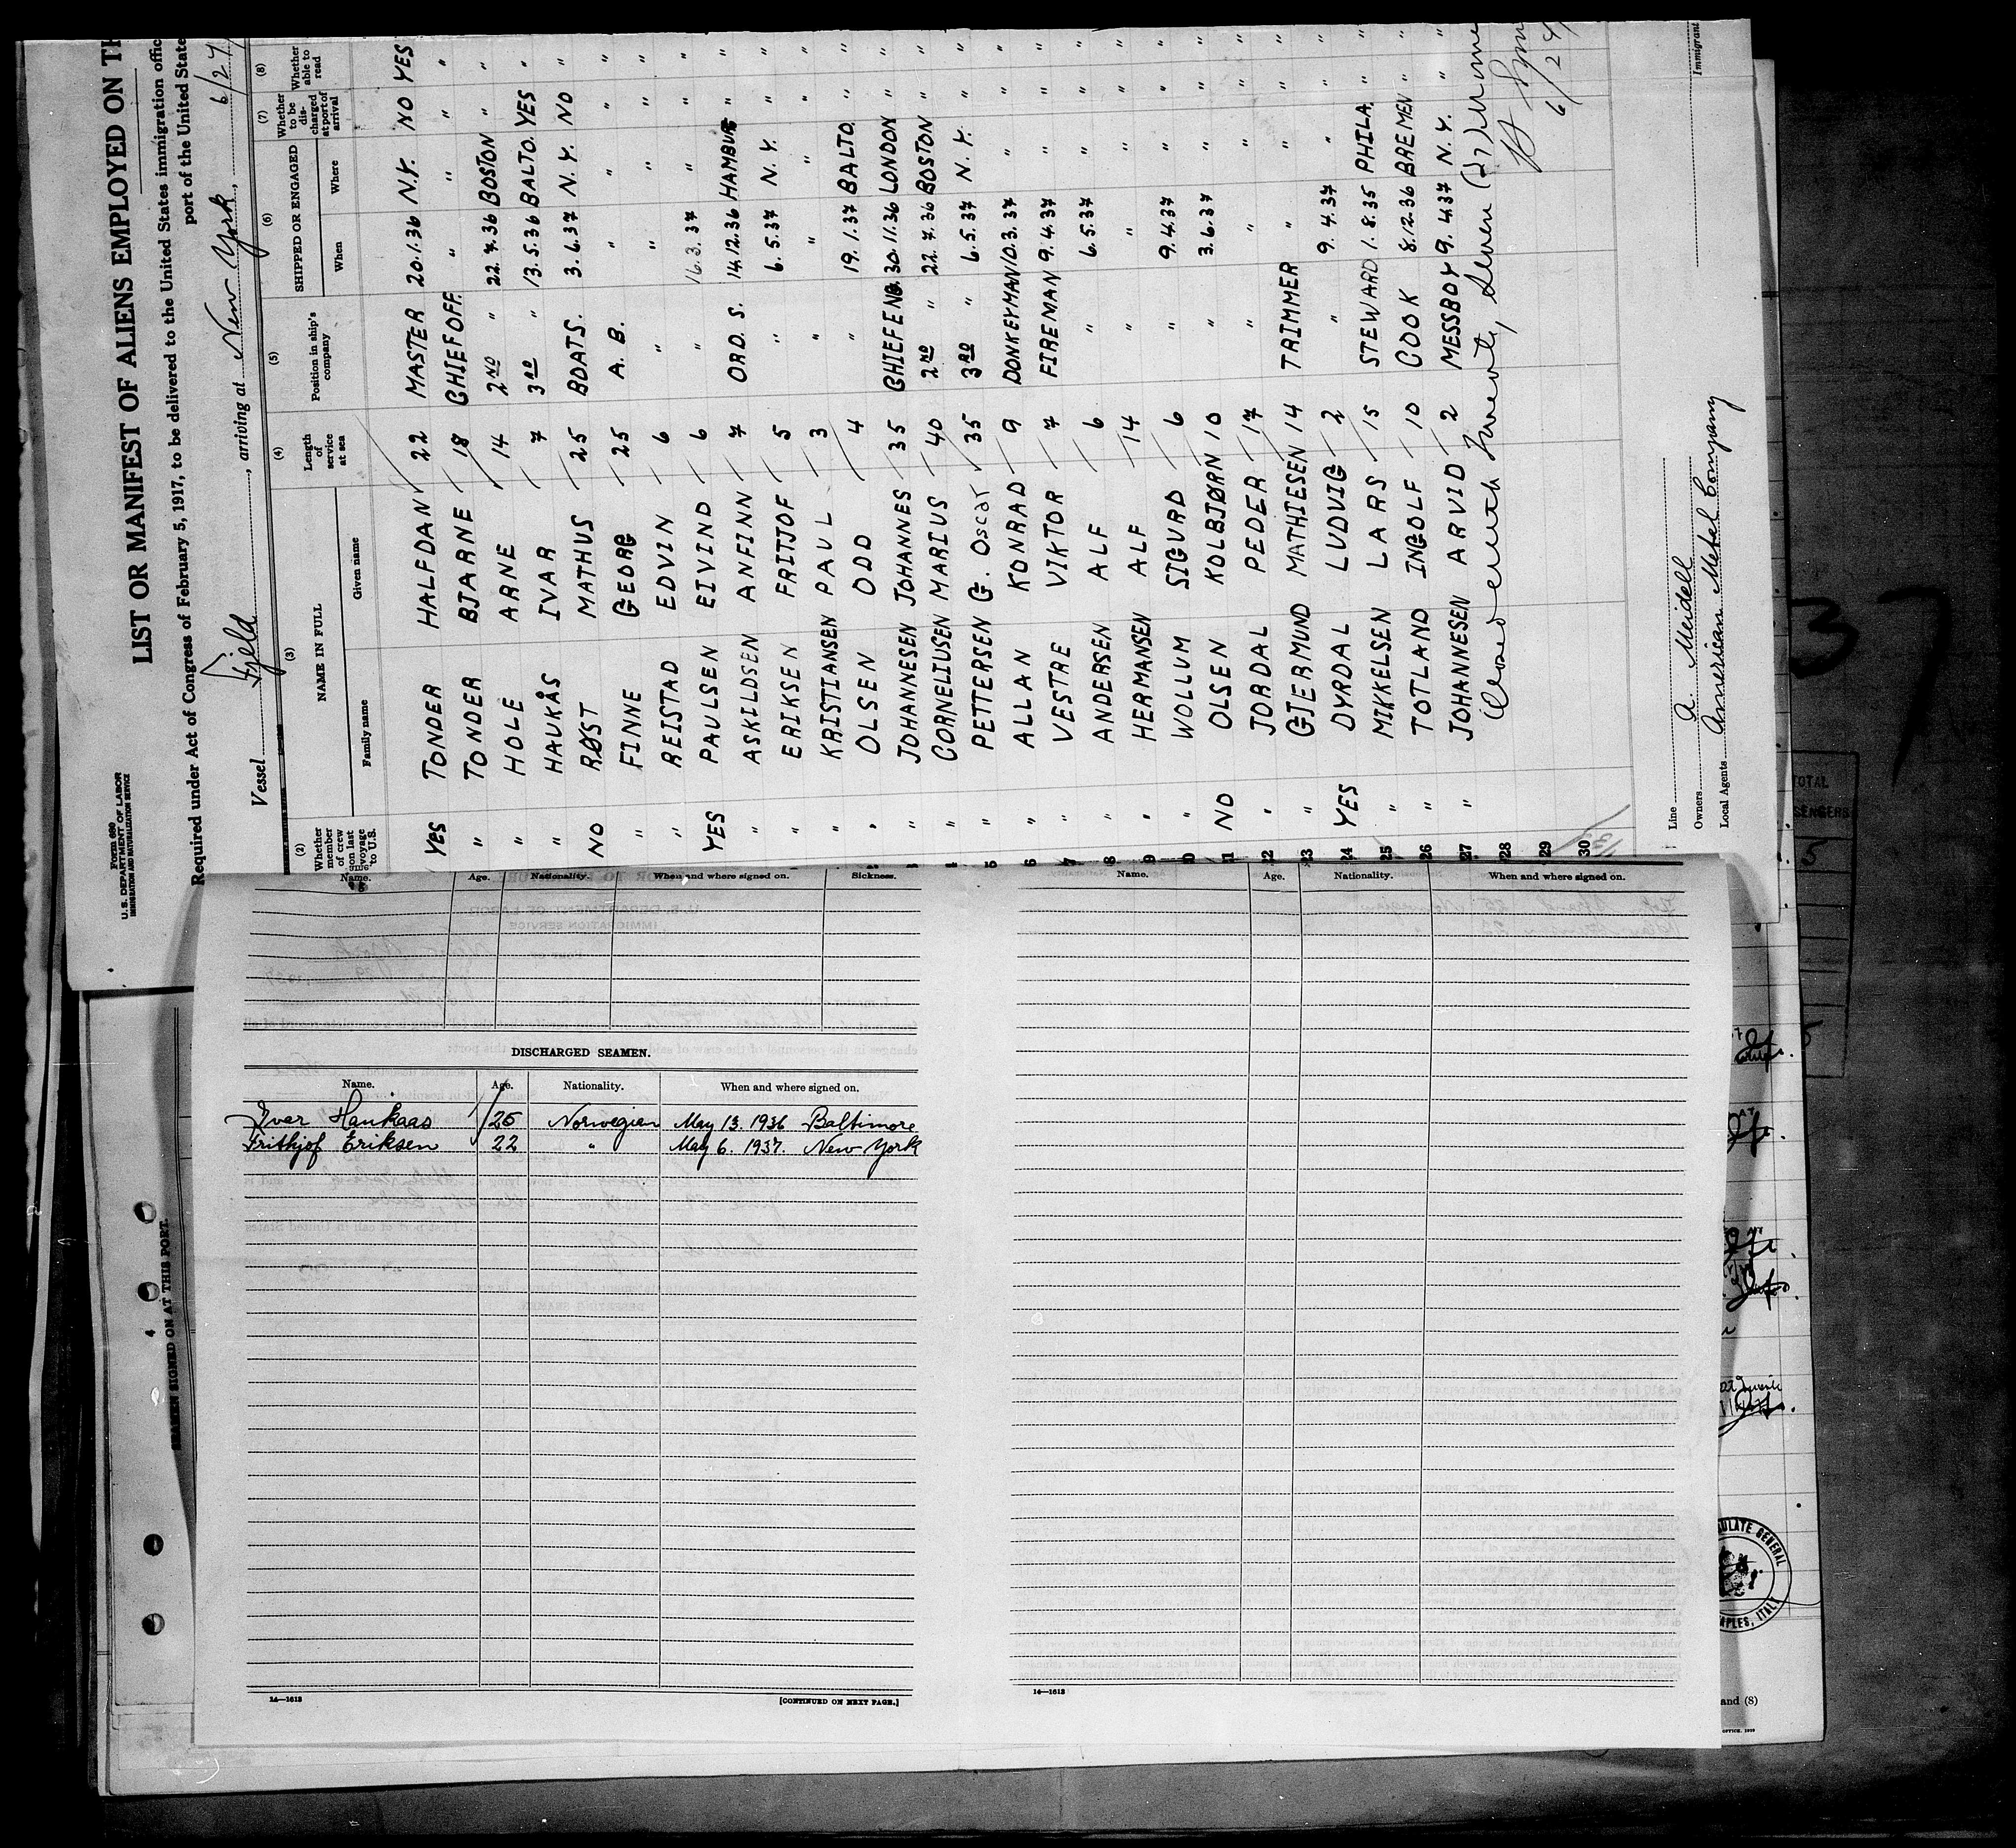 Form 680
U. S. DEPARTMENT OF LABOR
IMMIGRATION AND NATURALIZATION SERVICE
LIST OR MANIFEST OF ALIENS EMPLOYED ON TH
Required under Act of Congress of February 5, 1917, to be delivered to the United States immigration offic
port of the United State
Vessel Fjeld, arriving at New York, 6/24
(2) (3) (4) (5) (6) (7) (8)
Whether member of crew on last voyage to U.S. NAME IN FULL Length of service at sea Position in ship's company SHIPPED OR ENGAGED Whether to be discharged at port of arrival Whether able to read
Family name Given name When Where
YES TONDER HALFDAN 22 MASTER 20.1.36 N.Y. NO YES
" TONDER BJARNE 18 CHIEF OFF. " " " "
" HOLE ARNE 14 2ND " 22.7.36 BOSTON " "
" HAUKÅS IVAR 7 3RD " 13.5.36 BALTO. YES "
NO RØST MATHUS 25 BOATS. 3.6.37 N.Y. NO "
" FINNE GEORG 25 A.B. " " " "
" REISTAD EDVIN 6 " " " " "
YES PAULSEN EIVIND 6 " 16.3.37 " " "
" ASKILDSEN ANFINN 7 ORD. S. 14.12.36 HAMBURG " "
" ERIKSEN FRITJOF 5 " 6.5.37 N.Y. " "
" KRISTIANSEN PAUL 3 " " " " "
" OLSEN ODD 4 " 19.1.37 BALTO. " "
" JOHANNESEN JOHANNES 35 CHIEF ENG. 30.11.36 LONDON " "
" CORNELIUSEN MARIUS 40 2ND " 22.7.36 BOSTON " "
" PETTERSEN G. Oscar 35 3RD " 6.5.37 N.Y. " "
" ALLAN KONRAD 9 DONKEYMAN 10.3.37 " " "
" VESTRE VIKTOR 7 FIREMAN 9.4.37 " " "
" ANDERSEN ALF 6 " 6.5.37 " " "
" HERMANSEN ALF 14 " " " "
" WOLLUM SIGURD 6 " 9.4.37 " " "
NO OLSEN KOLBJØRN 10 " 3.6.37 " " "
" JORDAL PEDER 17 " " " " "
" GJERMUND MATHIESEN 14 TRIMMER " " "
YES DYRDAL LUDVIG 2 " 9.4.37 " " "
" MIKKELSEN LARS 15 STEWARD 1.8.35 PHILA. " "
" TOTLAND INGOLF 10 COOK 8.12.36 BREMEN " "
" JOHANNESEN ARVID 2 MESSBOY 9.4.37 N.Y. " "
Closed with Twenty Seven (27)
6/24
28
29
30
Line
Owners A. Meidell
Local Agents American Metal Company
Immigrant
Name. Age. Nationality. When and where signed on. Sickness.
DISCHARGED SEAMEN.
Name. Age. Nationality. When and where signed on.
Iver Haukaas 25 Norwegian May 13. 1936 Baltimore
Frithjof Eriksen 22 " May 6. 1937. New York
14—1613
[CONTINUED ON NEXT PAGE.]
Name. Age. Nationality. When and where signed on.
14—1613
SEAMEN SIGNED ON AT THIS PORT.
4
37
TOTAL
SENGERS
5
5
ULATE GENERAL
APLES, ITAL
and (8)